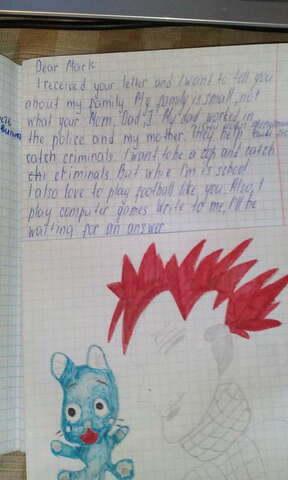 Dear Mark
I received your letter and I want to tell you
about my family. My family is small, not
what your Mom, Dad, I. My dad worked in
the police and my mother. They help
catch criminals. I want to be a cop and catch
criminals. But while I'm is school
I also love to play football like you. Also, I
play computer games. Write to me, I'll be
waiting for an answer